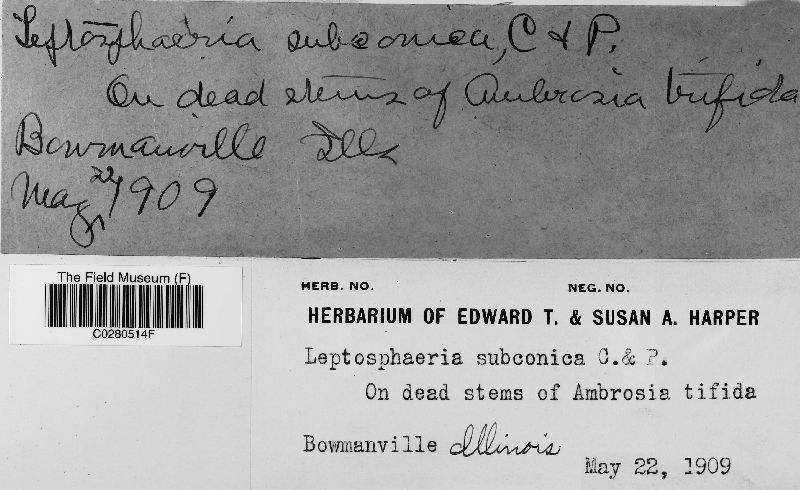 Leptosphaeria subconica, C & P.
On dead stems of Ambrosia trifida
Bowmanville Ills
May 22, 1909
The Field Museum (F)
C0280514F
HERB. NO. NEG. NO.
HERBARIUM OF EDWARD T. & SUSAN A. HARPER
Leptosphaeria subconica C.& P.
On dead stems of Ambrosia tifida
Bowmanville Illinois
May 22, 1909